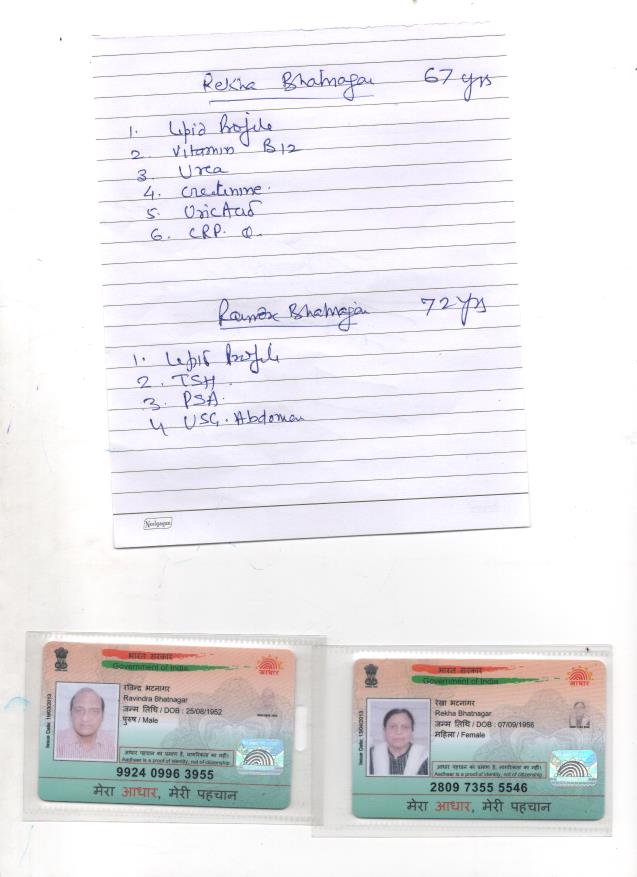 Rekha Bhatnagar 67 yrs
1. Lipid Profile
2. Vitamin B12
3. Urea
4. Creatinine.
5. Uric Acid
6. CRP. Q.
Bhatnagar 72 yrs
1. Lipid Profile
2. TSH.
3. PSA.
4. USG. Abdomen
Neelgagan
भारत सरकार
Government of India
आधार
Issue Date: 19/03/2013
रविन्द्र भटनागर
Ravindra Bhatnagar
जन्म तिथि / DOB : 25/08/1952
पुरुष / Male
आधार पहचान का प्रमाण है, नागरिकता का नहीं।
Aadhaar is a proof of identity, not of citizenship.
9924 0996 3955
मेरा आधार, मेरी पहचान
भारत सरकार
Government of India
आधार
रेखा भटनागर
Rekha Bhatnagar
जन्म तिथि / DOB: 07/09/1956
महिला / Female
आधार पहचान का प्रमाण है, नागरिकता का नहीं।
Aadhaar is a proof of identity, not of citizenship.
2809 7355 5546
मेरा आधार, मेरी पहचान